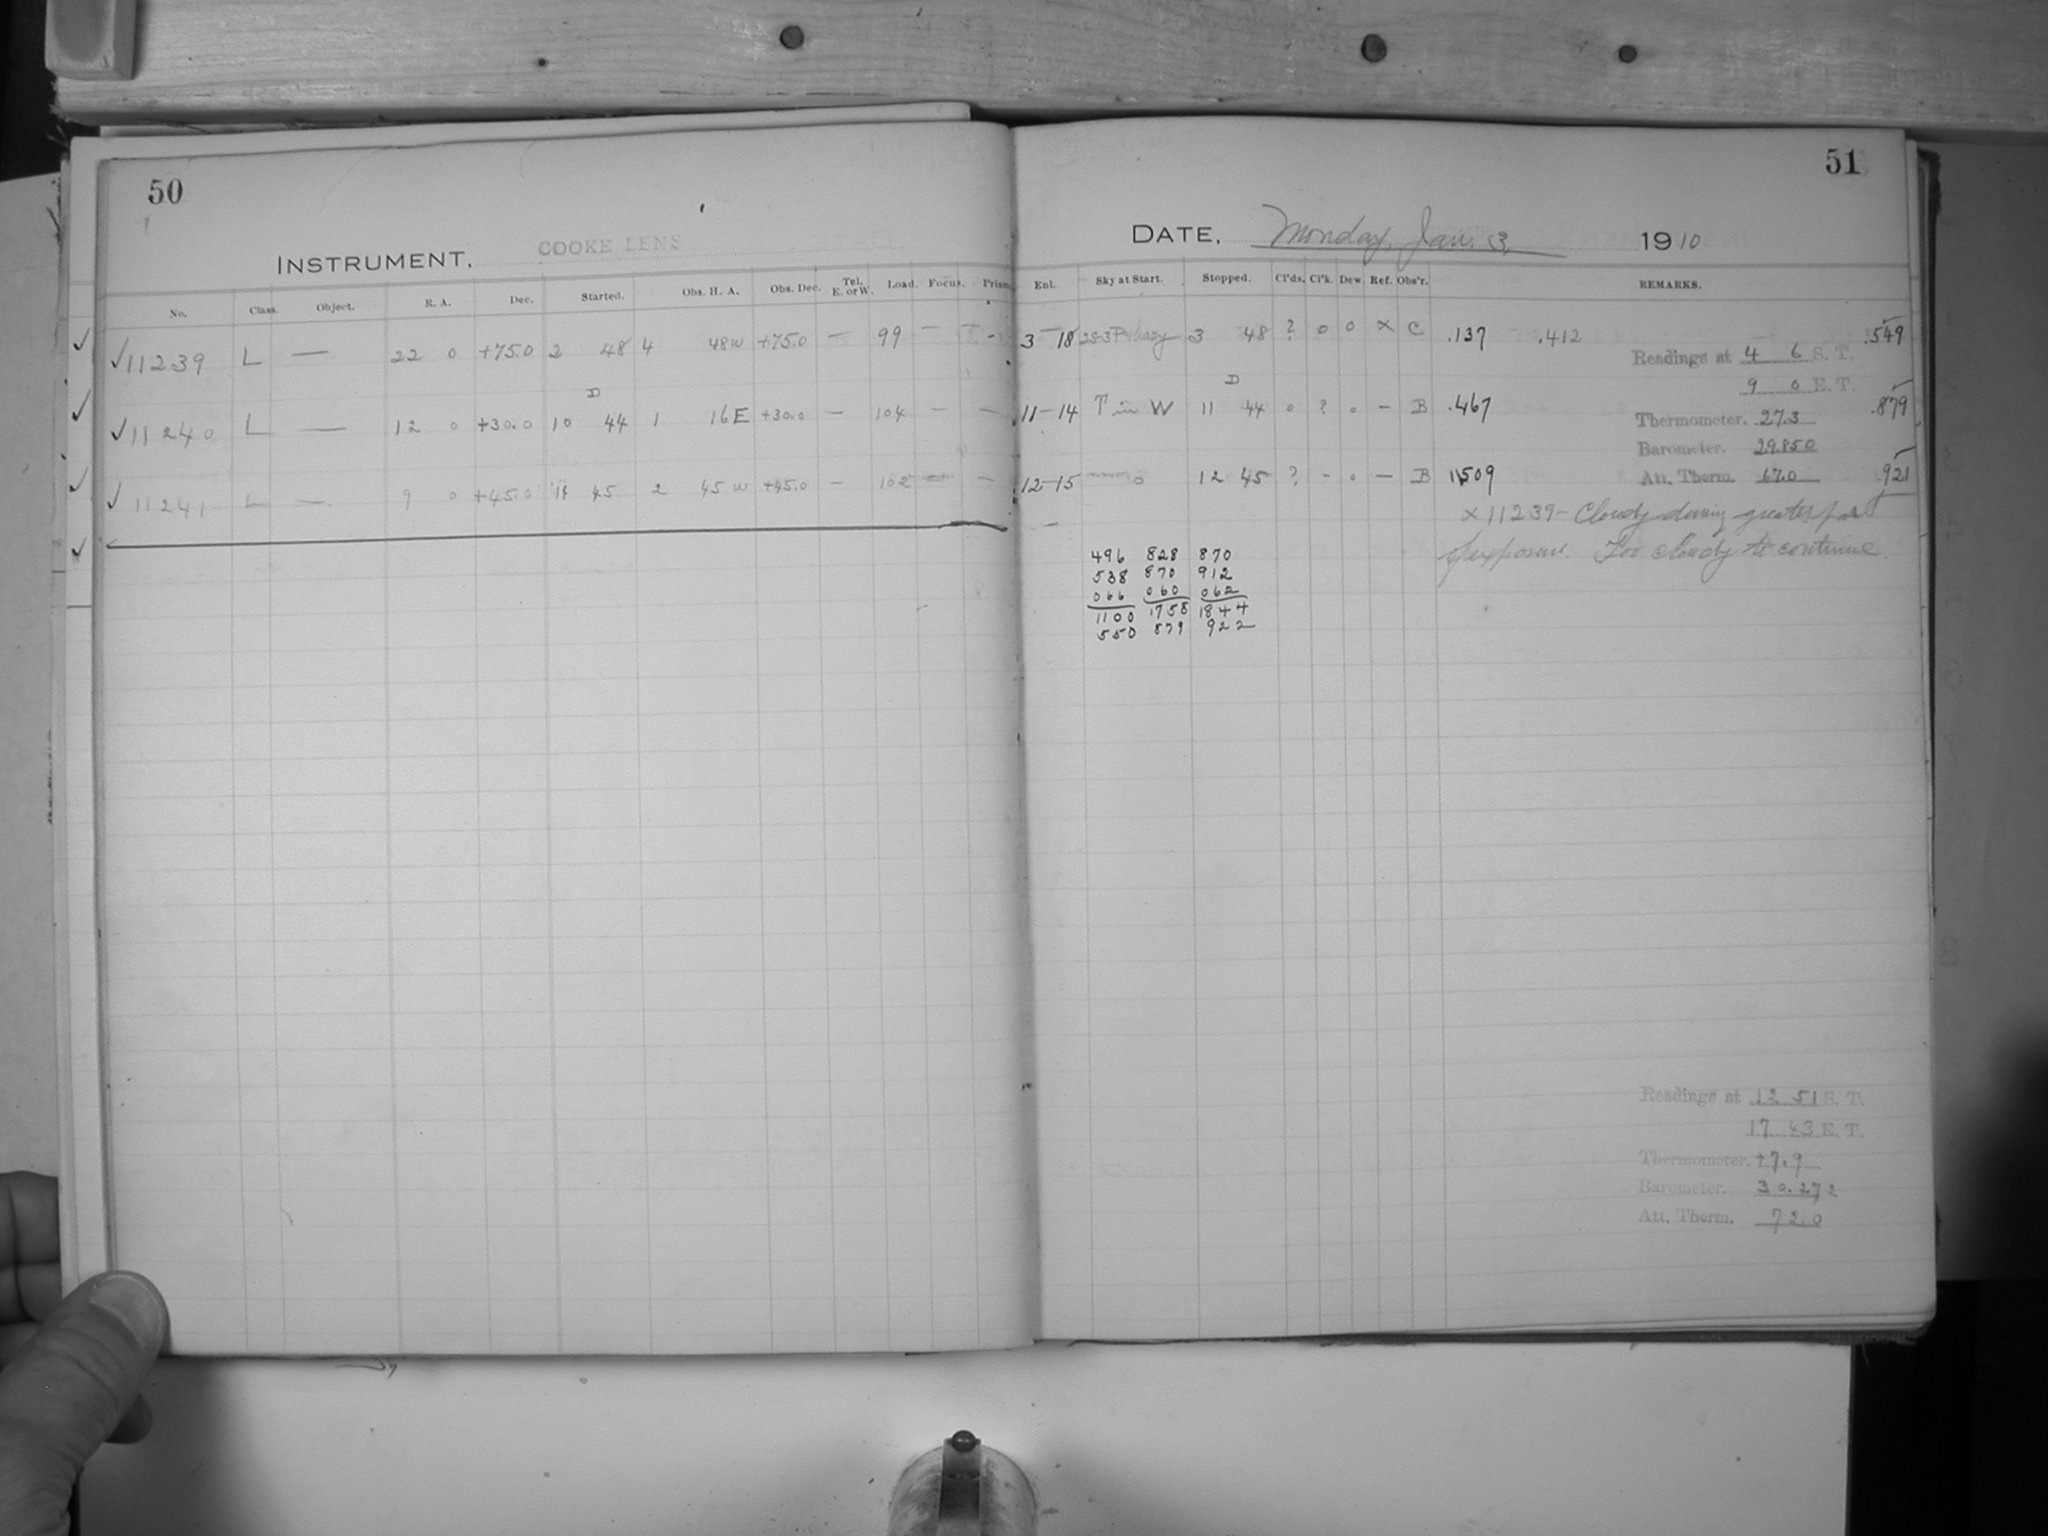 50
INSTRUMENT. COOKE LENS
No. Class. Object. R. A. Dec. Started. Obs. H. A. Obs. Dec. Tel. E. or W. Load. Focus. Prism
✓11239 L — 22 0 +75.0 2 48 4 48W +75.0 — 99 — -
✓11240 L — 12 0 +30.0 10 D 44 1 16E +30.0 — 104 — —
✓11241 L — 9 0 +45.0 11 45 2 45W +45.0 — 102 — —
51
DATE, Monday, Jan. 3, 1910
Enl. Sky at Start. Stopped. Cl'ds. Cl'k. Dew. Ref. Obs'r. REMARKS.
3—18 hazy 3 48 ? 0 0 × C .137 .412 .549
Readings at 4 6 S. T.
9 0 E. T.
11—14 T in W 11 D 44 0 ? 0 — B .467 .879
Thermometer. 27.3
Barometer. 29.850
12—15 0 12 45 ? - 0 — B 509 .921
Att. Therm. 67.0
×11239- Cloudy during greater part
of exposure. Too cloudy to continue.
496 828 870
538 870 912
066 060 062
1100 1758 1844
550 879 922
Readings at 12 51 S. T.
17 43 E. T.
Thermometer. +7.9
Barometer. 30.272
Att. Therm. 72.0